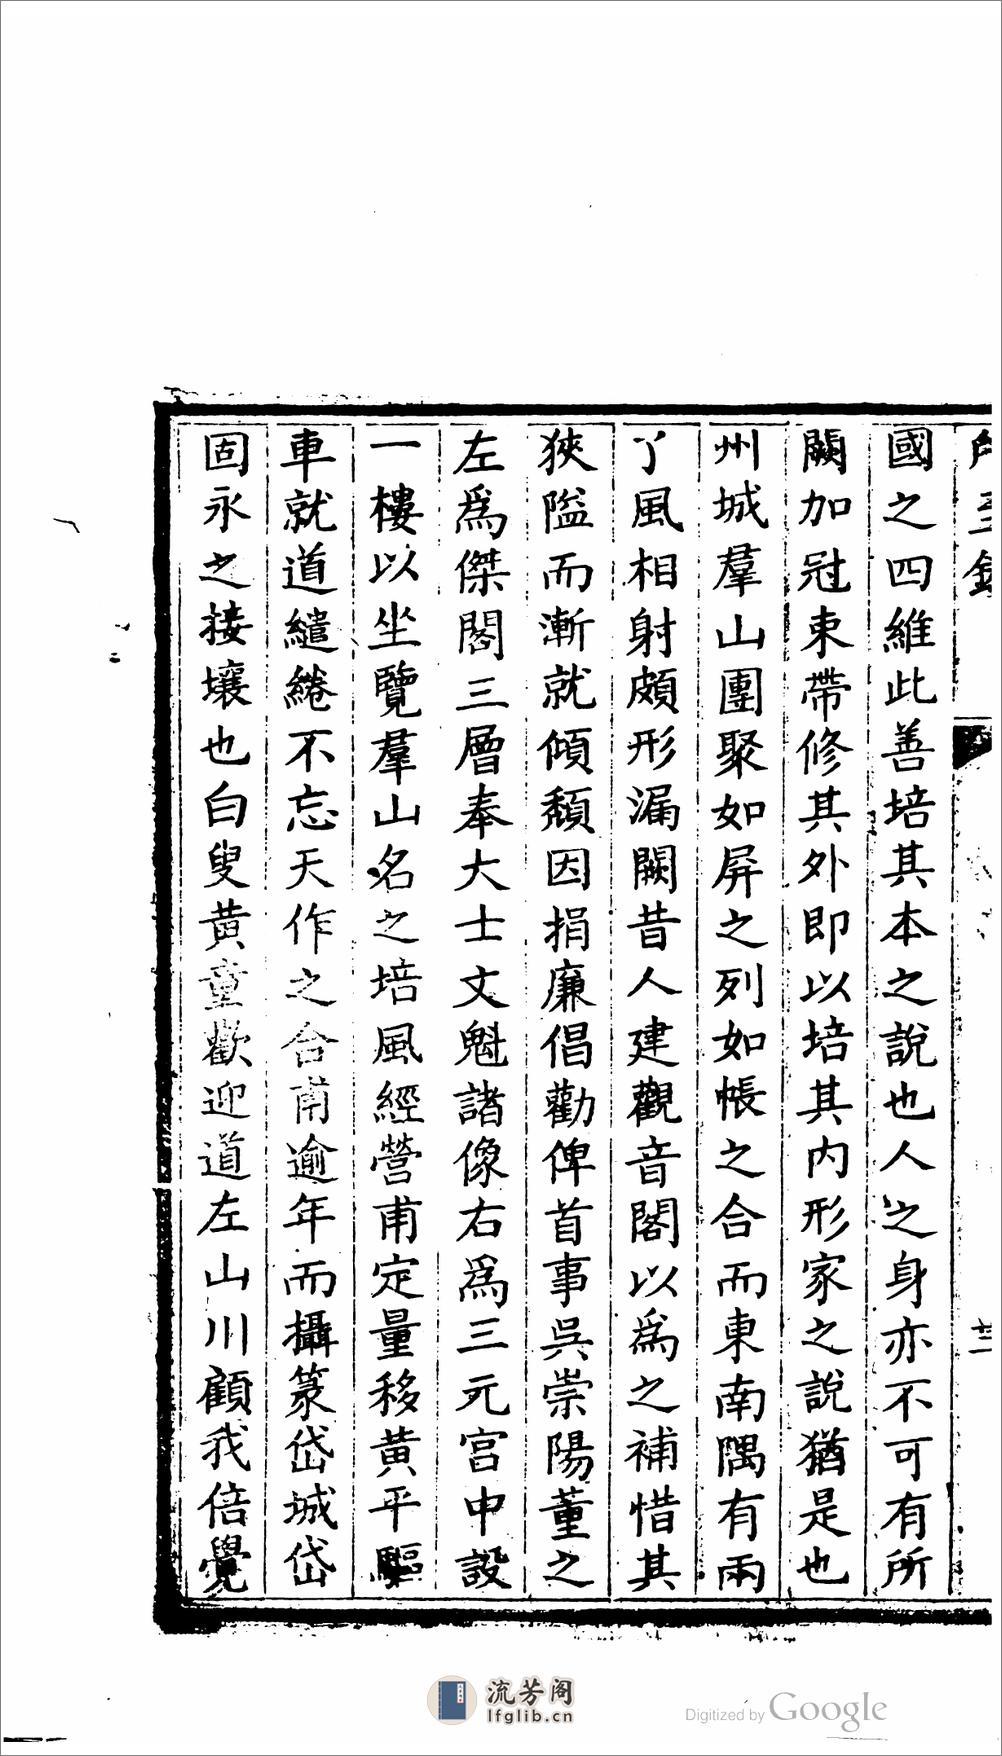 國之四維此善培其本之說也人之身亦不可有所
闕加冠束帶修其外即以培其内形家之說猶是也
州城羣山團聚如屏之列如帳之合而東南隅有兩
丫風相射頗形漏闕昔人建觀音閣以為之補惜其
狹隘而漸就傾頹因捐廉倡勸俾首事吳崇陽董之
左為傑閣三層奉大士文魁諸像右為三元宫中設
一樓以坐覽羣山名之培風經營甫定量移黄平驅
車就道繾綣不忘天作之合甫逾年而攝篆岱城岱
固永之接壤也白叟黄童歡迎道左山川顧我倍覺
流芳阁
lfglib.cn
Digitized by Google